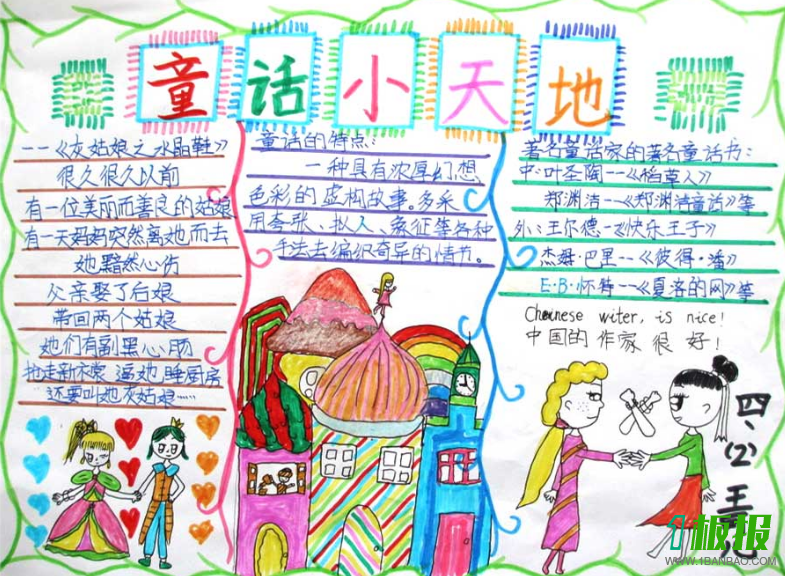 童话小天地
--《灰姑娘之水晶鞋》
很久很久以前
有一位美丽而善良的姑娘
有一天妈妈突然离她而去
她黯然心伤
父亲娶了后娘
带回两个姑娘
她们有副黑心肠
抢走新衣裳 逼她睡厨房
还要叫她灰姑娘……
童话的特点:
一种具有浓厚幻想
色彩的虚构故事。多采
用夸张、拟人、象征等各种
手法去编织奇异的情节。
著名童话家的著名童话书:
中:叶圣陶--《稻草人》
郑渊洁--《郑渊洁童话》等
外:王尔德-《快乐王子》
杰姆·巴里--《彼得·潘》
E·B·怀特--《夏洛的网》等
Chainese witer, is nice!
中国的作家很好!
四、(2) 王
1板报
WWW.1BANBAO.COM